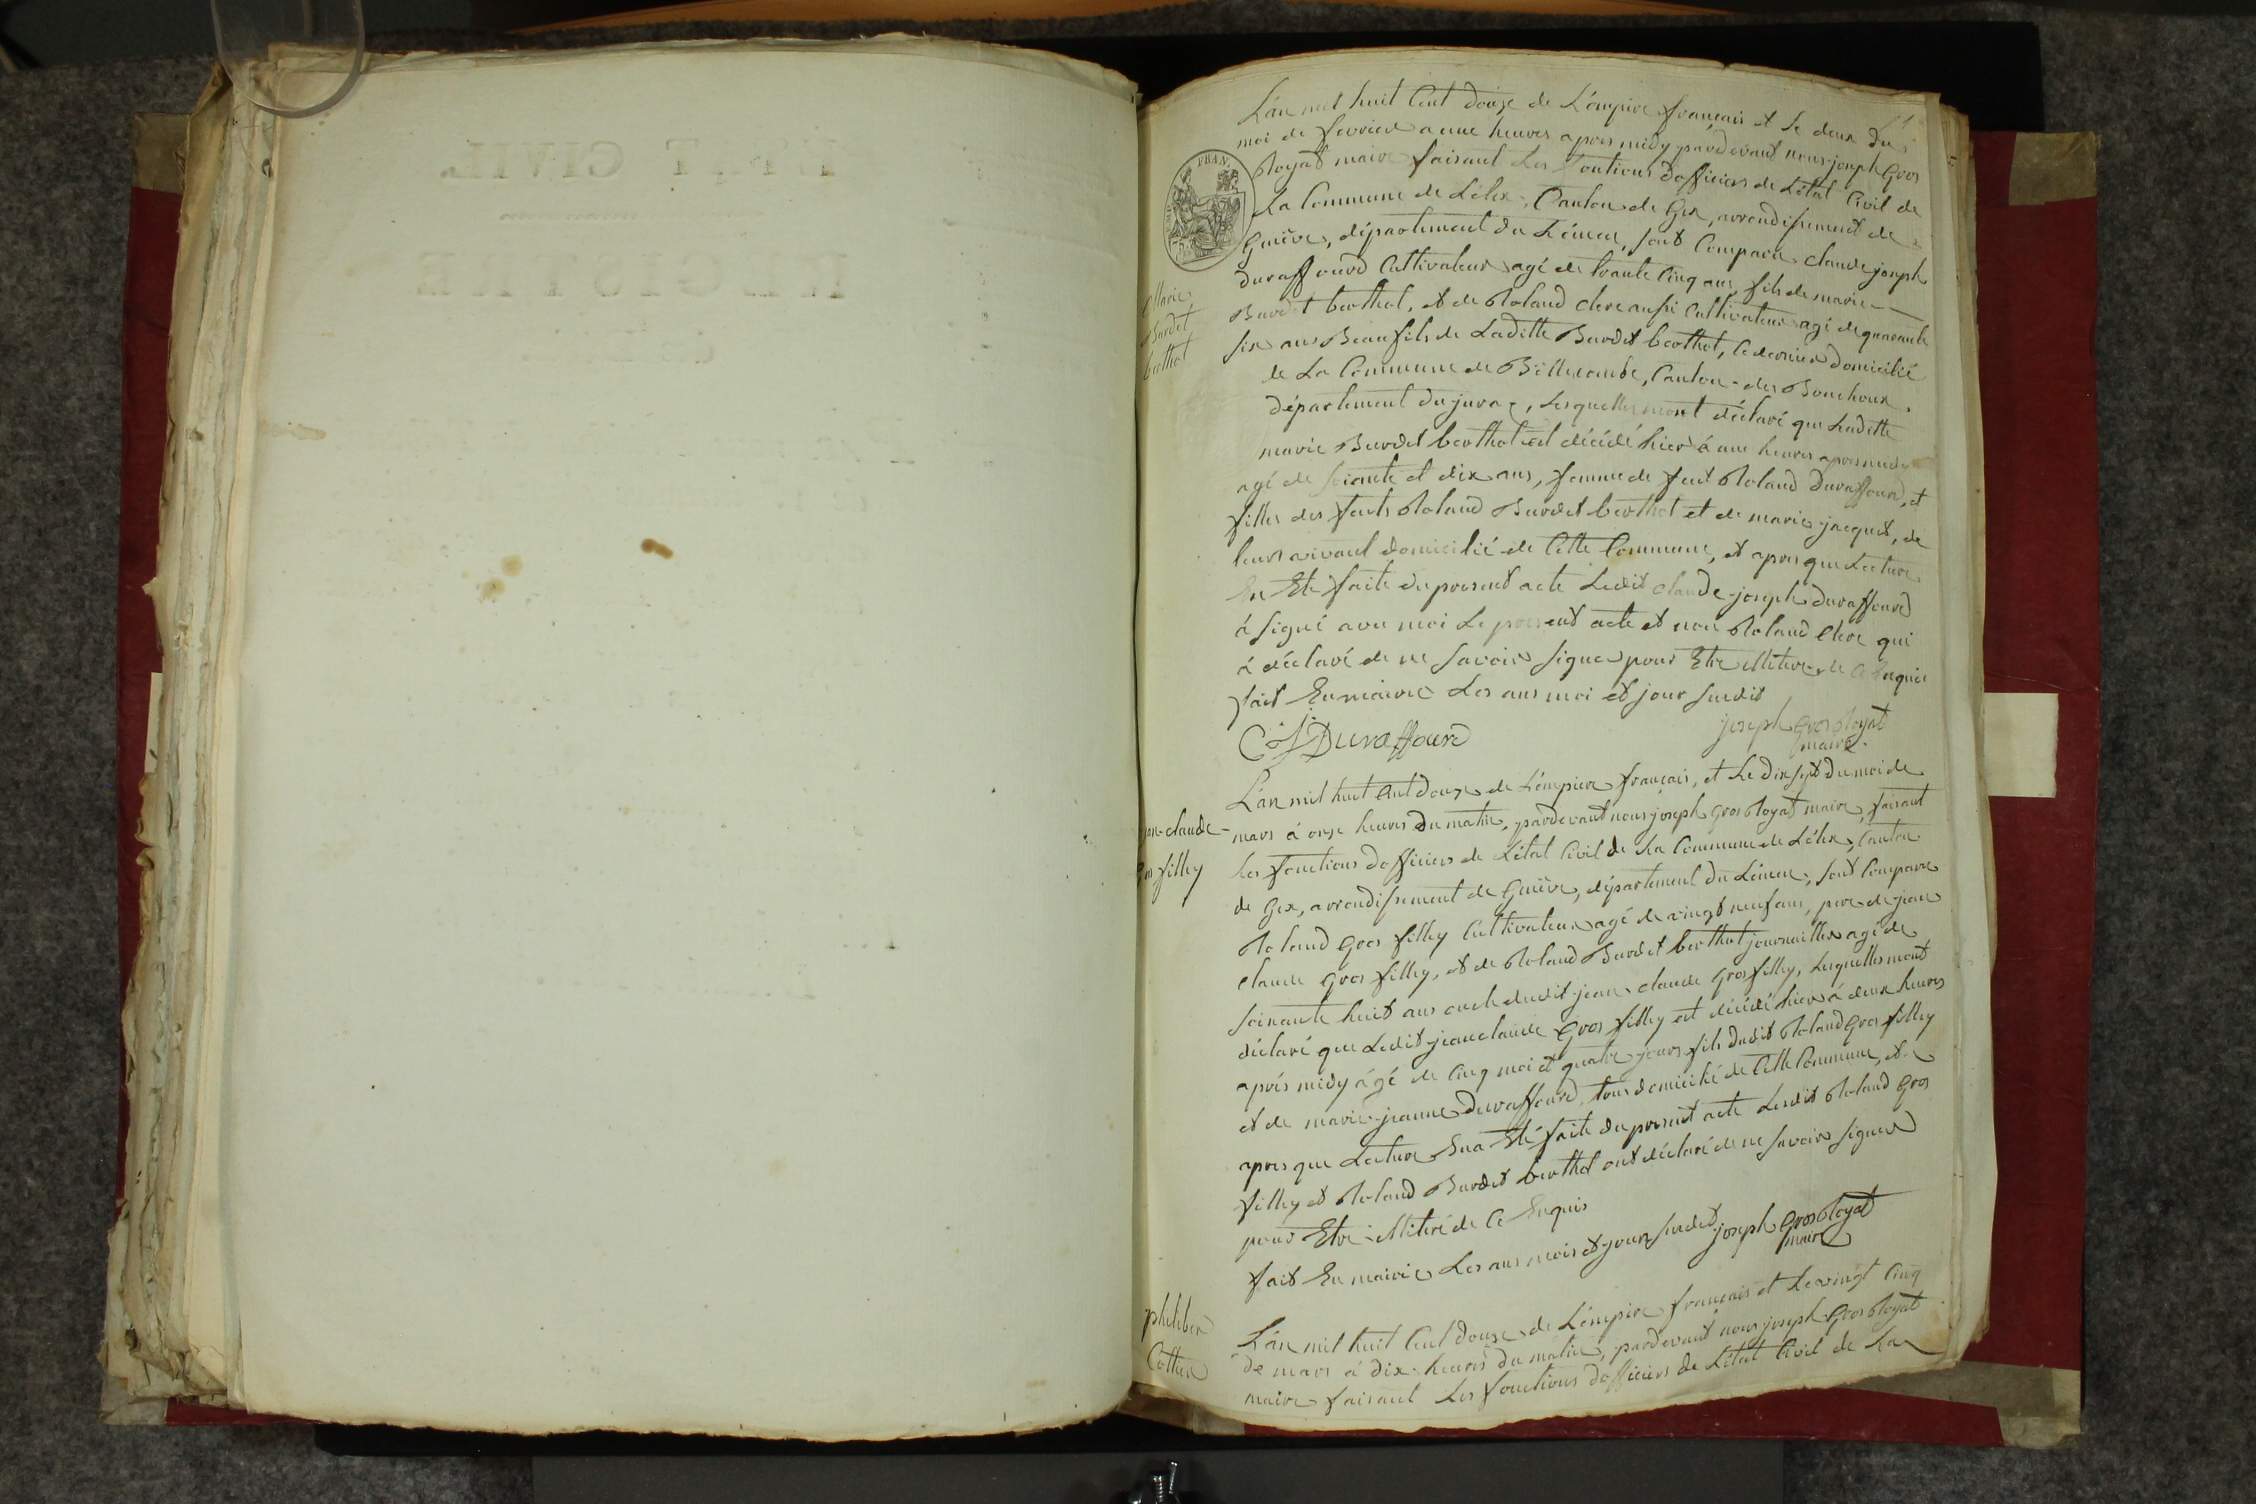 L'an mil huit Cent douze de L'émpire français et le deux du
moi de fevrier a une heures apres midy pardevant nous joseph Gros
Royat maire faisant Les fontions d'officiers de L'état Civil de
La Commune de Lélex, Canton de Gex, arrondissement de
Genève, département du Léman, sont Comparu claude joseph
duraffourd Cultivateur agé de trante Cinq ans, fils de marie
Burdet berthot, et de Roland clerc aussi Cultivateur agé de quarante
Marie
Burdet
berthot
six ans Beau fils de Laditte Burdet berthot, Ce dernier domicilié
de La Commune de Bellecombe, Canton des Bouchoux,
département du jura, Lesquelles mont déclaré que Laditte
marie Burdet berthot est décédé hier à une heures apres midy
agé de soixante et dix ans, femme de feut Roland Duraffourd, et
filles des feuts Roland Burdet berthot et de marie jacquet, de
leurs vivant domicilié de Cette Commune, et apres que Lecture
En Eté faite du present acte Ledit claude joseph duraffourd
à signé avec moi Le present acte et non Roland Clerc qui
à déclaré de ne savoir signer pour Etre illiteré de Ce Enquis
fait En mairie Les ans moi et jour susdit
C. j. Duraffourd
joseph Gros Royat
maire.
L'an mil huit Cent douze de L'émpire français, et Le dix sept du moi de
jean-claude
Gros filley
mars à onze heures du matin, pardevant nous joseph Gros Royat maire, faisant
les fonctions d'officiers de L'état Civil de La Commune de Lélex, Canton
de Gex, arrondissement de Genève, département du Léman, sont Comparu
Roland Gros filley Cultivateur agé de vingt neuf ans, pere de jean
claude Gros filley, et de Roland Burdet berthot journaillier agé de
soixante huit ans oncle dudit jean claude Gros filley, Lesquelles mont
déclaré que Ledit jean claude Gros filley est décédé hier à deux heures
après midy âgé de Cinq moi et quatre jours fils dudit Roland Gros filley
et de marie-jeanne Duraffourd, tous domicilié de Cette Commune, et
apres que Lecture En a Eté faite du present acte Lesdit Roland Gros
filley et Roland Burdet berthot ont déclaré de ne savoir signer
pour Etre illiteré de Ce Enquis
fait En mairie Les ans mois et jours susdit joseph Gros Royat
maire
philiber
Cottier
L'an mil huit Cent douze de L'émpire français et Le vingt Cinq
de mars à dix heures du matin, pardevant nous joseph Gros Royat
maire faisant Les fonctions d'officiers de L'état Civil de La